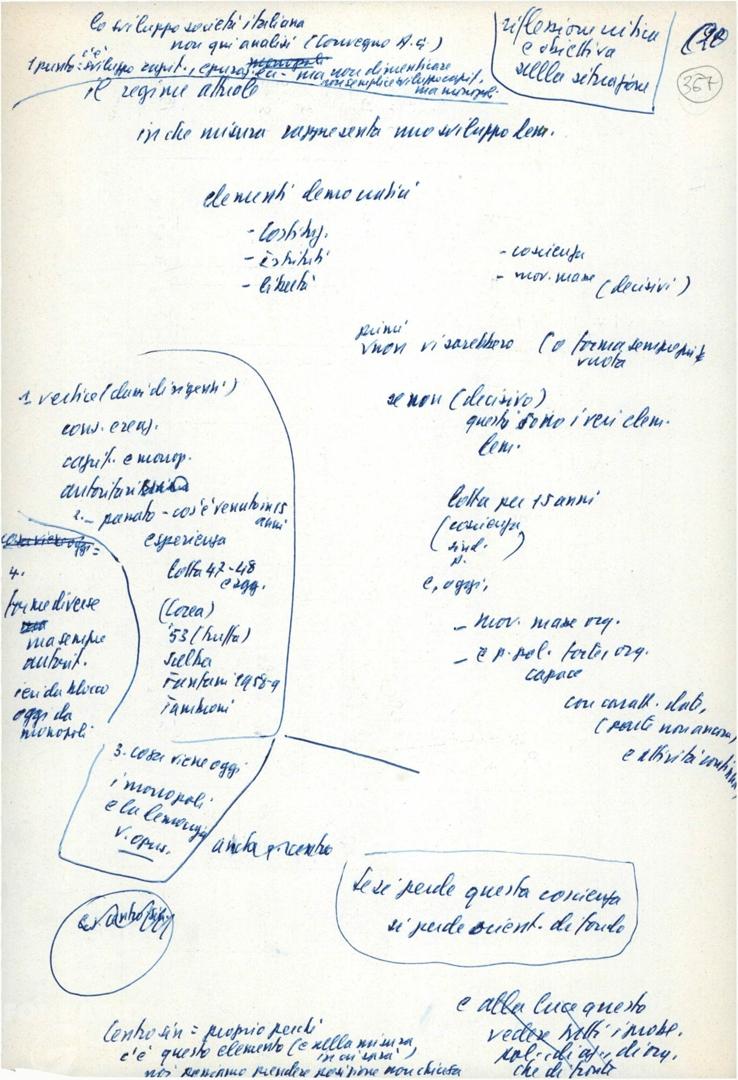 lo sviluppo società italiana
non qui analisi (Convegno A.G.)
riflessione critica
e obiettiva
della situazione
367
1 punto: c'è sviluppo capit., ma non dimenticare
non semplice sviluppo capit.
ma monopoli
il regime attuale
in che misura rappresenta uno sviluppo dem.
elementi democratici
- Costituz.
- istituti
- libertà
- coscienza
- mov. masse (decisivi)
primi
non vi sarebbero (o forma sempre più
vuota
se non (decisivo)
questi sono i veri elem.
dem.
1. vertice (classi dirigenti)
cons. e reaz.
capit. e monop.
autoritari
2.- passato - cos'è venuto in 15
anni
esperienza
lotta 47-48
e sgg.
(Corea)
'53 (truffa)
Scelba
Fanfani 1958-9
Tambroni
cosa viene oggi =
4.
forme diverse
ma sempre
autorit.
ieri da blocco
oggi da
monopoli
lotta per 15 anni
(coscienza
sind.
p. )
e, oggi,
- mov. masse org.
- e p. pol. forte org.
capace
con caratt. dati,
(parte non ancora)
e attività continua
3. cosa viene oggi
i monopoli
e la
v. opus.
anche p. centro
Se si perde questa coscienza
si perde orient. di fondo
Centro sin = proprio perché
c'è questo elemento (e nella misura
in cui sarà)
noi possiamo prendere posizione non chiusa
e alla luce questo
vedere tutti i probl.
pol. di az. di org.
che di fronte